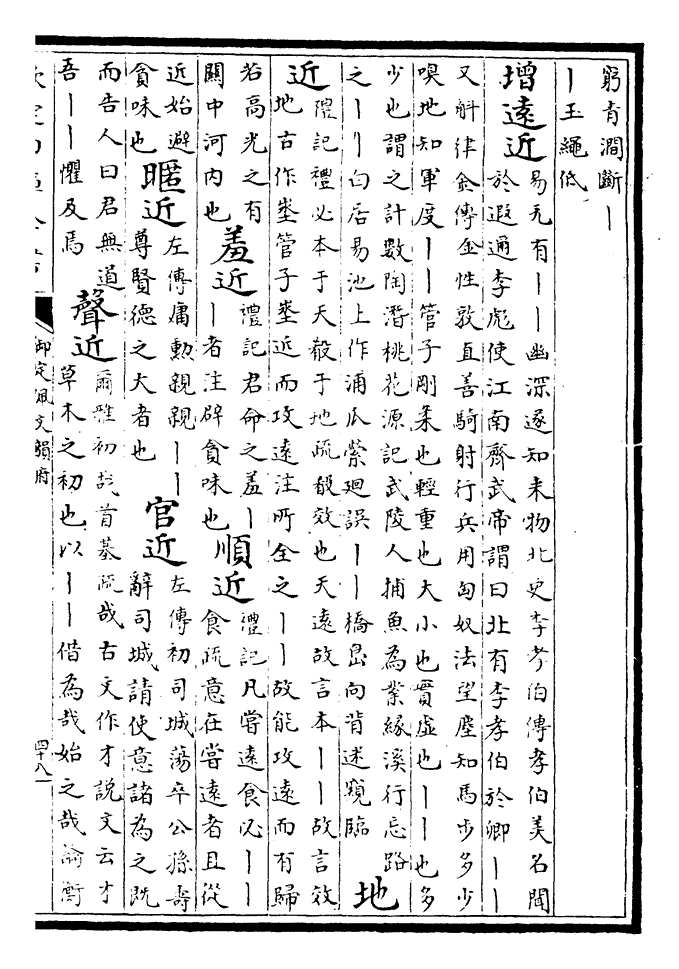 窮青澗斷｜
｜玉繩低
增遠近
易无有｜｜幽深遂知来物北史李孝伯傳孝伯美名聞
於遐邇李彪使江南齊武帝謂曰北有李孝伯於卿｜｜
又斛律金傳金性敦直善騎射行兵用匈奴法望塵知馬步多少
嗅地知軍度｜｜管子剛柔也輕重也大小也實虛也｜｜也多
少也謂之計數陶潛桃花源記武陵人捕魚為業緣溪行忘路
之｜｜白居易池上作浦瓜縈廻誤｜｜橋島向背迷窺臨
地近
禮記禮必本于天殽于地疏殽效也天遠故言本｜｜故言效
地古作埊管子埊近而攻遠注所全之｜｜故能攻遠而有歸
若高光之有
關中河内也
羞近
禮記君命之羞｜
｜者注辟貪味也
順近
禮記凡嘗遠食必｜｜
食疏意在嘗遠者且從
近始避
貪味也
暱近
左傳庸勳親親｜｜
尊賢德之大者也
官近
左傳初司城蕩卒公孫壽
辭司城請使意諸為之既
而告人曰君無道
吾｜｜懼及焉
聲近
爾雅初哉首基疏哉古文作才說文云才
草木之初也以｜｜借為哉始之哉論衡
欽定四庫全書
御定佩文韻府
四十八